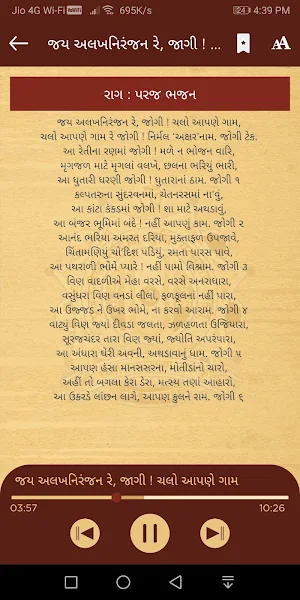 Jio 4G Wi-Fi VoWiFi 695K/s 64 4:39 PM
જય અલખનિરંજન રે, જાગી ! ...
AA
રાગ : પરજ ભજન
જય અલખનિરંજન રે, જોગી ! ચલો આપણે ગામ,
ચલો આપણે ગામ રે જોગી ! નિર્મલ 'અક્ષર'નામ. જોગી ટેક.
આ રેતીના રણમાં જોગી ! મળે ન ભોજન વારિ,
મૃગજળ માટે મૃગલાં વલખે, છલના ભરિયું ભારી,
આ ધુતારી ધરણી જોગી ! ધુતારાનાં ઠામ. જોગી ૧
કલ્પતરુના સુંદરવનમાં, ચેતનરસમાં ના'વું,
આ કાંટા કંકડમાં જોગી ! શા માટે અથડાવું,
આ બંજર ભૂમિમાં બંદે ! નહીં આપણું કામ. જોગી ૨
આનંદ ભરિયા અમરત દરિયા, મુક્તાફળ ઉપજાવે,
ચિંતામણિયું ચો'દિશ પડિયું, રમતા પારસ પાવે,
આ પથરાળી ભોમે પ્યારે ! નહીં પામો વિશ્રામ. જોગી ૩
વિણ વાદળીએ મેહા વરસે, વરસે અનરાધારા,
વસુંધરા વિણ વનડાં લીલાં, ફળફૂલનાં નહીં પારા,
આ ઉજ્જડ ને ઉખર ભોમે, ના કરવો આરામ. જોગી ૪
વાટ્યું વિણ જ્યાં દીવડા જલતા, ઝળહળતા ઉજિયારા,
સૂરજચંદર તારા વિણ જ્યાં, જ્યોતિ અપરંપારા,
આ અંધારા ઘેરી અવની, અથડાવાનું ધામ. જોગી ૫
આપણ હંસા માનસસરના, મોતીડાંનો ચારો,
અહીં તો બગલા કેરા ડેરા, મત્સ્ય તણાં આહારો,
આ ઉકરડે લાંછન લાગે, આપણ કુલને રામ. જોગી ૬
જય અલખનિરંજન રે, જાગી ! ચલો આપણે ગામ
03:57 10:26